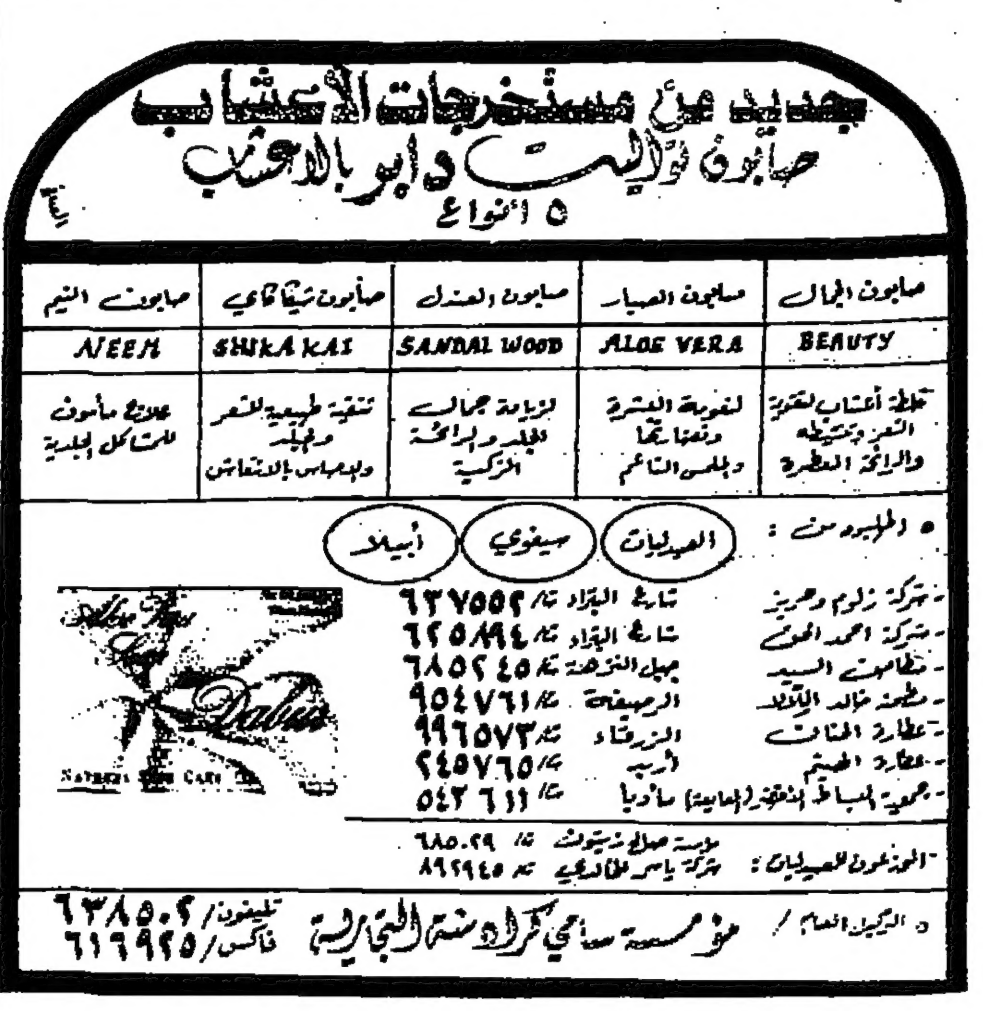 جديد من مستخرجات الأعشاب
صابون تواليت دابر بالاعشاب
٥ أنواع
صابون الجمال
صابون الصبار
صابون الصندل
صابون شيكاكاي
صابون النيم
BEAUTY
ALOE VERA
SANDAL WOOD
SHIKA KAI
NEEM
خلطة أعشاب لتقوية
الشعر وتنشيطه
والرائحة العطرة
لنعومة البشرة
ونضارتها
وملمس الناعم
لزيادة جمال
الجلد والرائحة
الزكية
تنقية طبيعية للشعر
والجلد
والاحساس بالانتعاش
علاج مأمون
للمشاكل الجلدية
• اطلبوه من :
الصيدليات
سيفوي
أبيلا
- شركة زلوم وحريز شارع البتراء ت/ ٦٣٧٥٥٢
- شركة احمد الحق شارع البتراء ت/ ٦٢٥٨٩٤
- السيد جبل النزهة ت/ ٦٨٥٢٤٥
- مطحنة خالد الرصيفة ت/ ٩٥٤٧٦١
- عطارة الزرقاء ت/ ٩٩٦٥٧٣
- عطارة الهيثم أربد ت/ ٢٤٥٧٦٥
- جمعية البساط مأدبا ت/ ٥٤٣٦١١
Dabur
NATURAL CARE
مؤسسة صالح زيتون ت/ ٦٨٥٠٢٩
- الموزعون للصيدليات : شركة ياسر الخالدي ت/ ٨٩٢٩٤٥
• الوكيل العام / مؤسسة سامي التجارية تليفون/ ٦٣٨٥٠٢
فاكس/ ٦١٦٩٢٥